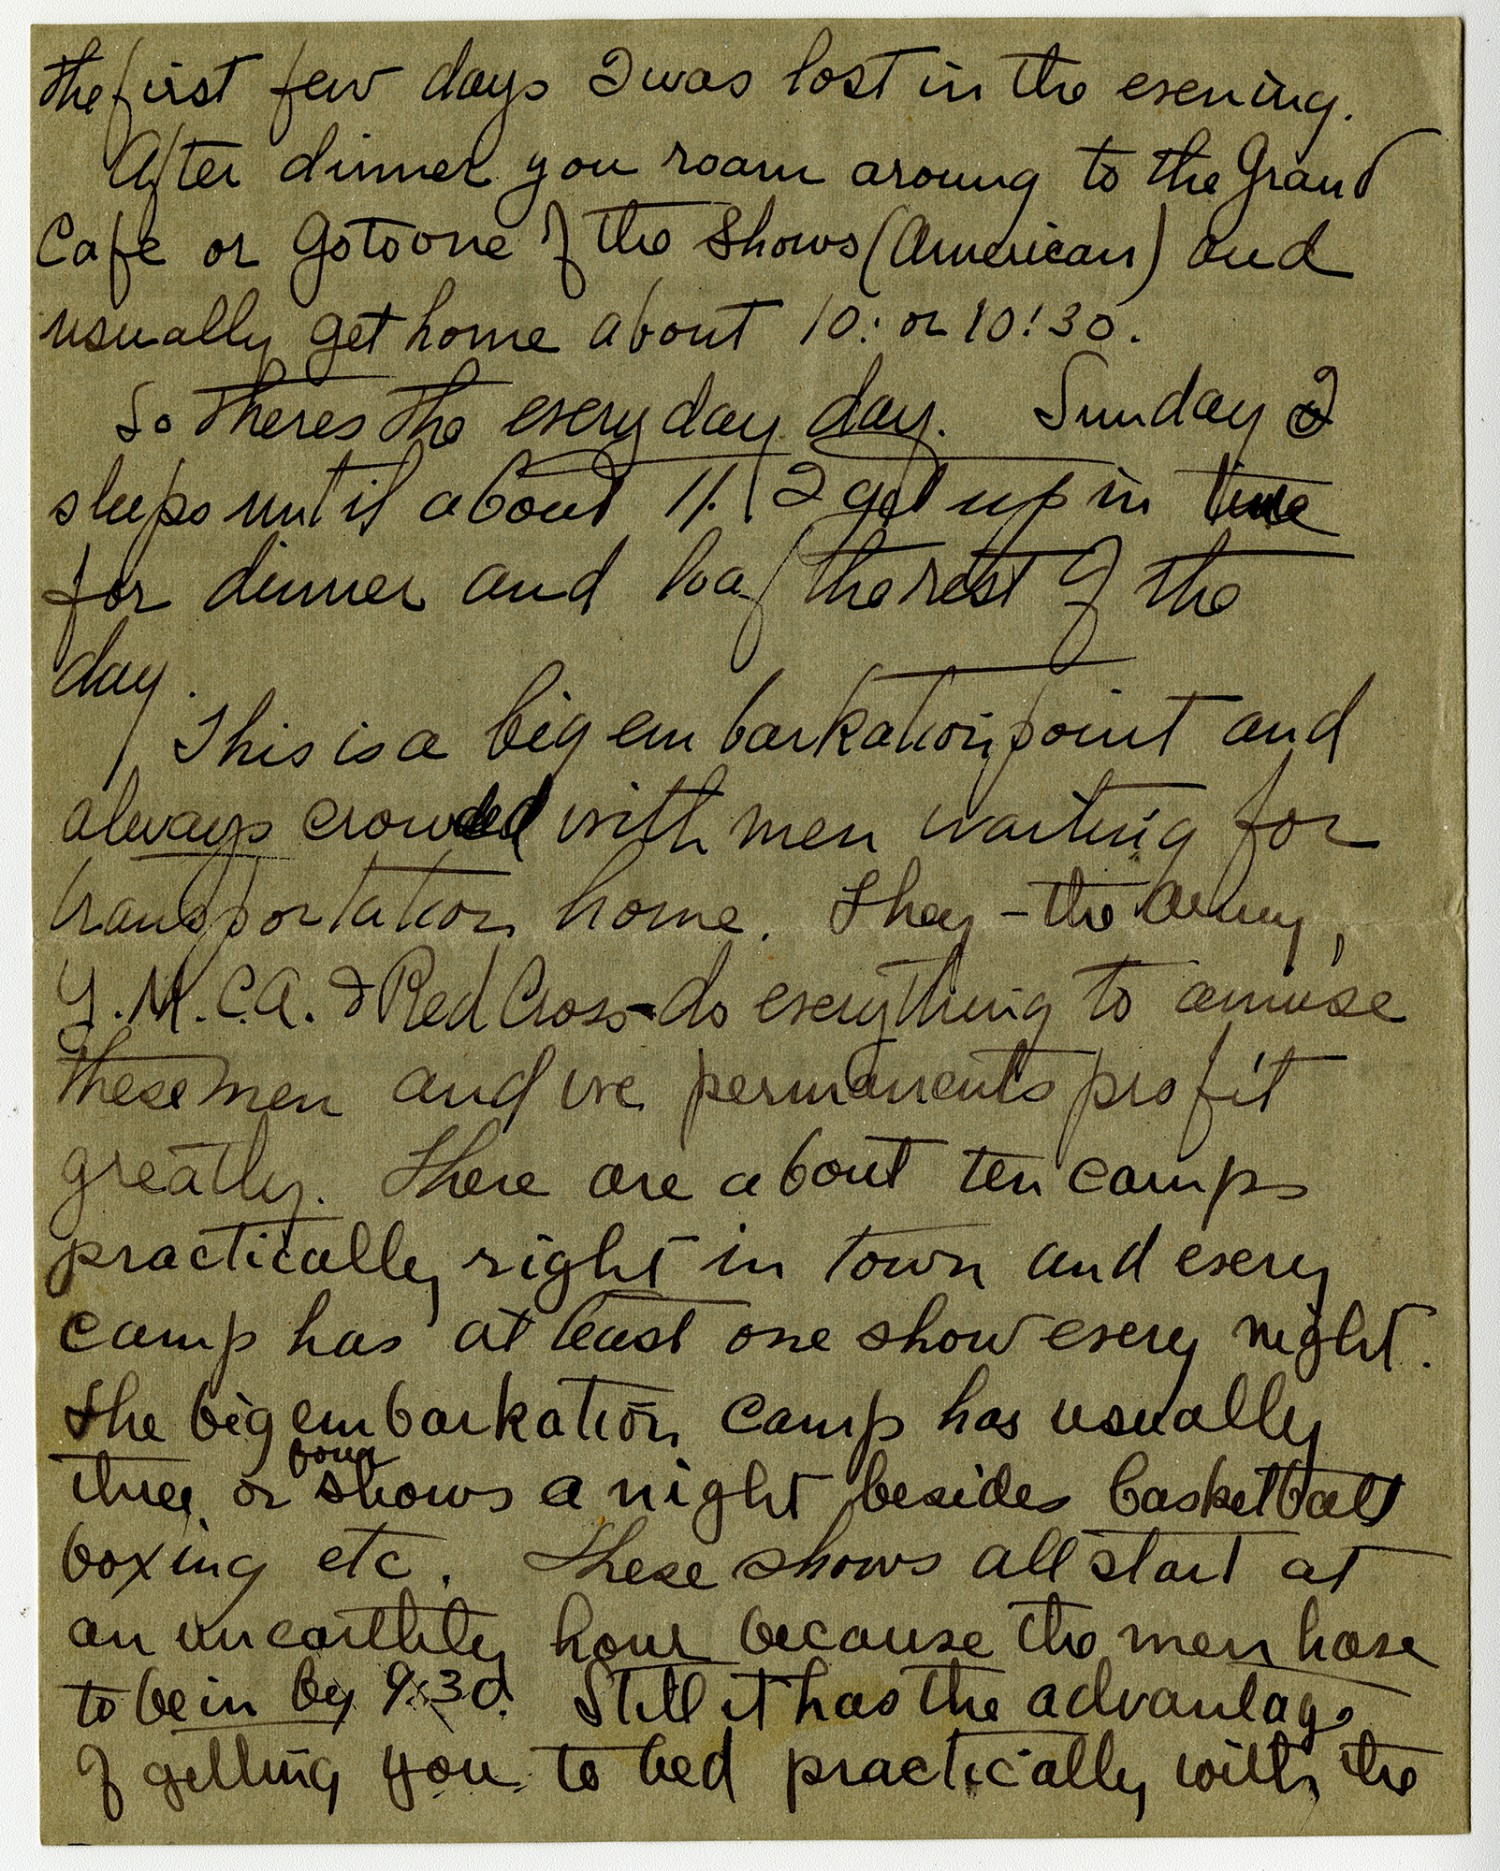 the first few days I was lost in the evening.
After dinner you roam aroung to the Grand
Cafe or go to one of the shows (American) and
usually get home about 10: or 10:30.
So theres the every day day. Sunday I
sleeps until about 11. I get up in time
for dinner and loaf the rest of the
day.
This is a big embarkation point and
always crowded with men waiting for
transportation home. They - the Army,
Y.M.C.A. & Red Cross - do everything to amuse
these men and we permanents profit
greatly. There are about ten camps
practically right in town and every
camp has at least one show every night.
The big embarkation camp has usually
three or four shows a night besides basketball
boxing etc. These shows all start at
an unearthly hour because the men have
to be in by 9:30. Still it has the advantage
of getting you to bed practically with the